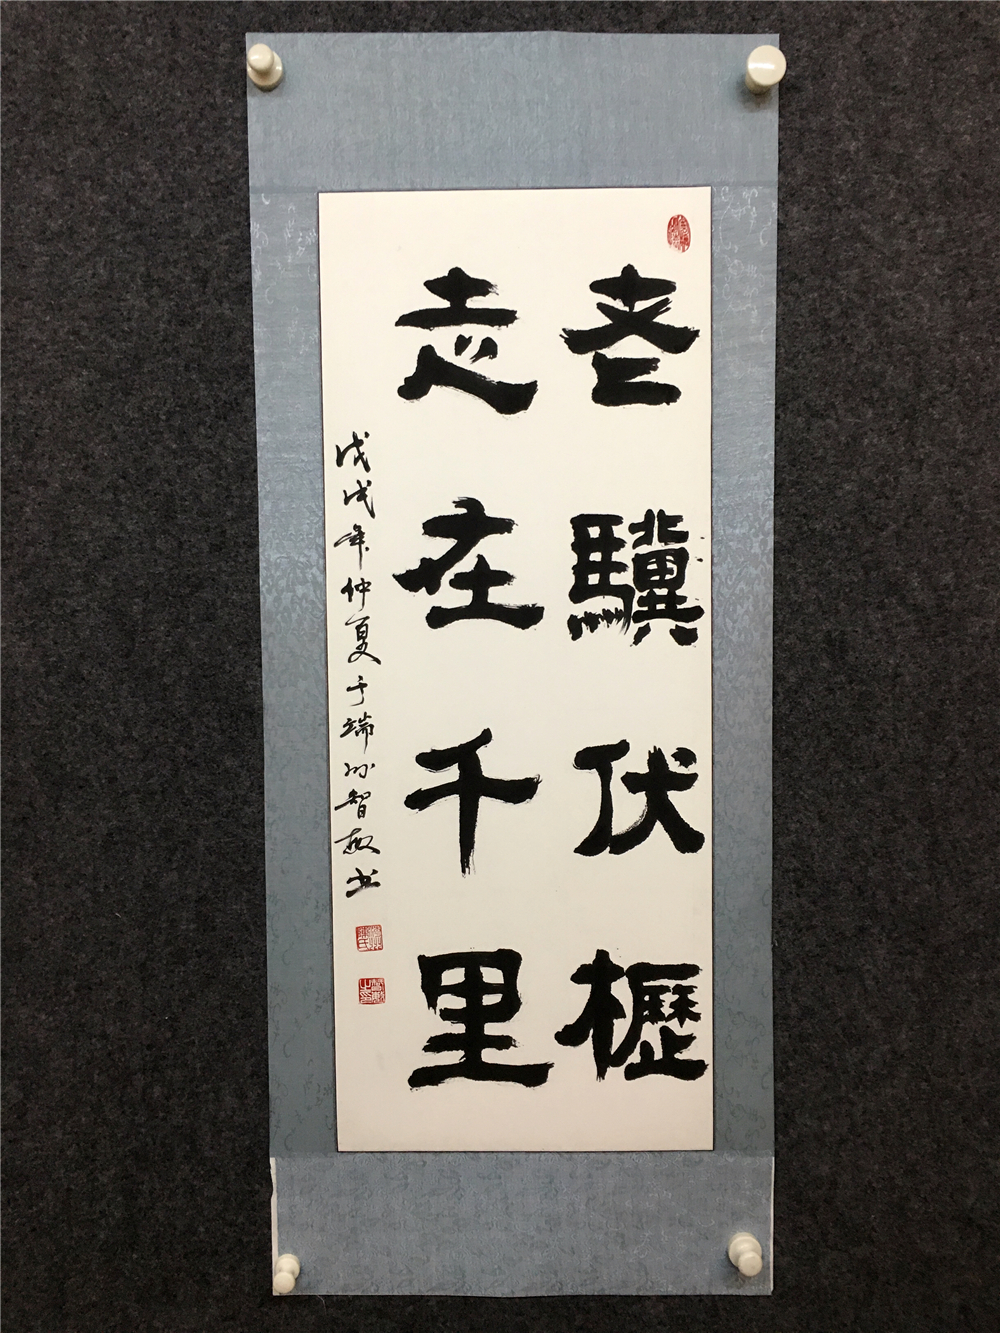 老驥伏櫪
志在千里
戊戌年仲夏于端州智敏书